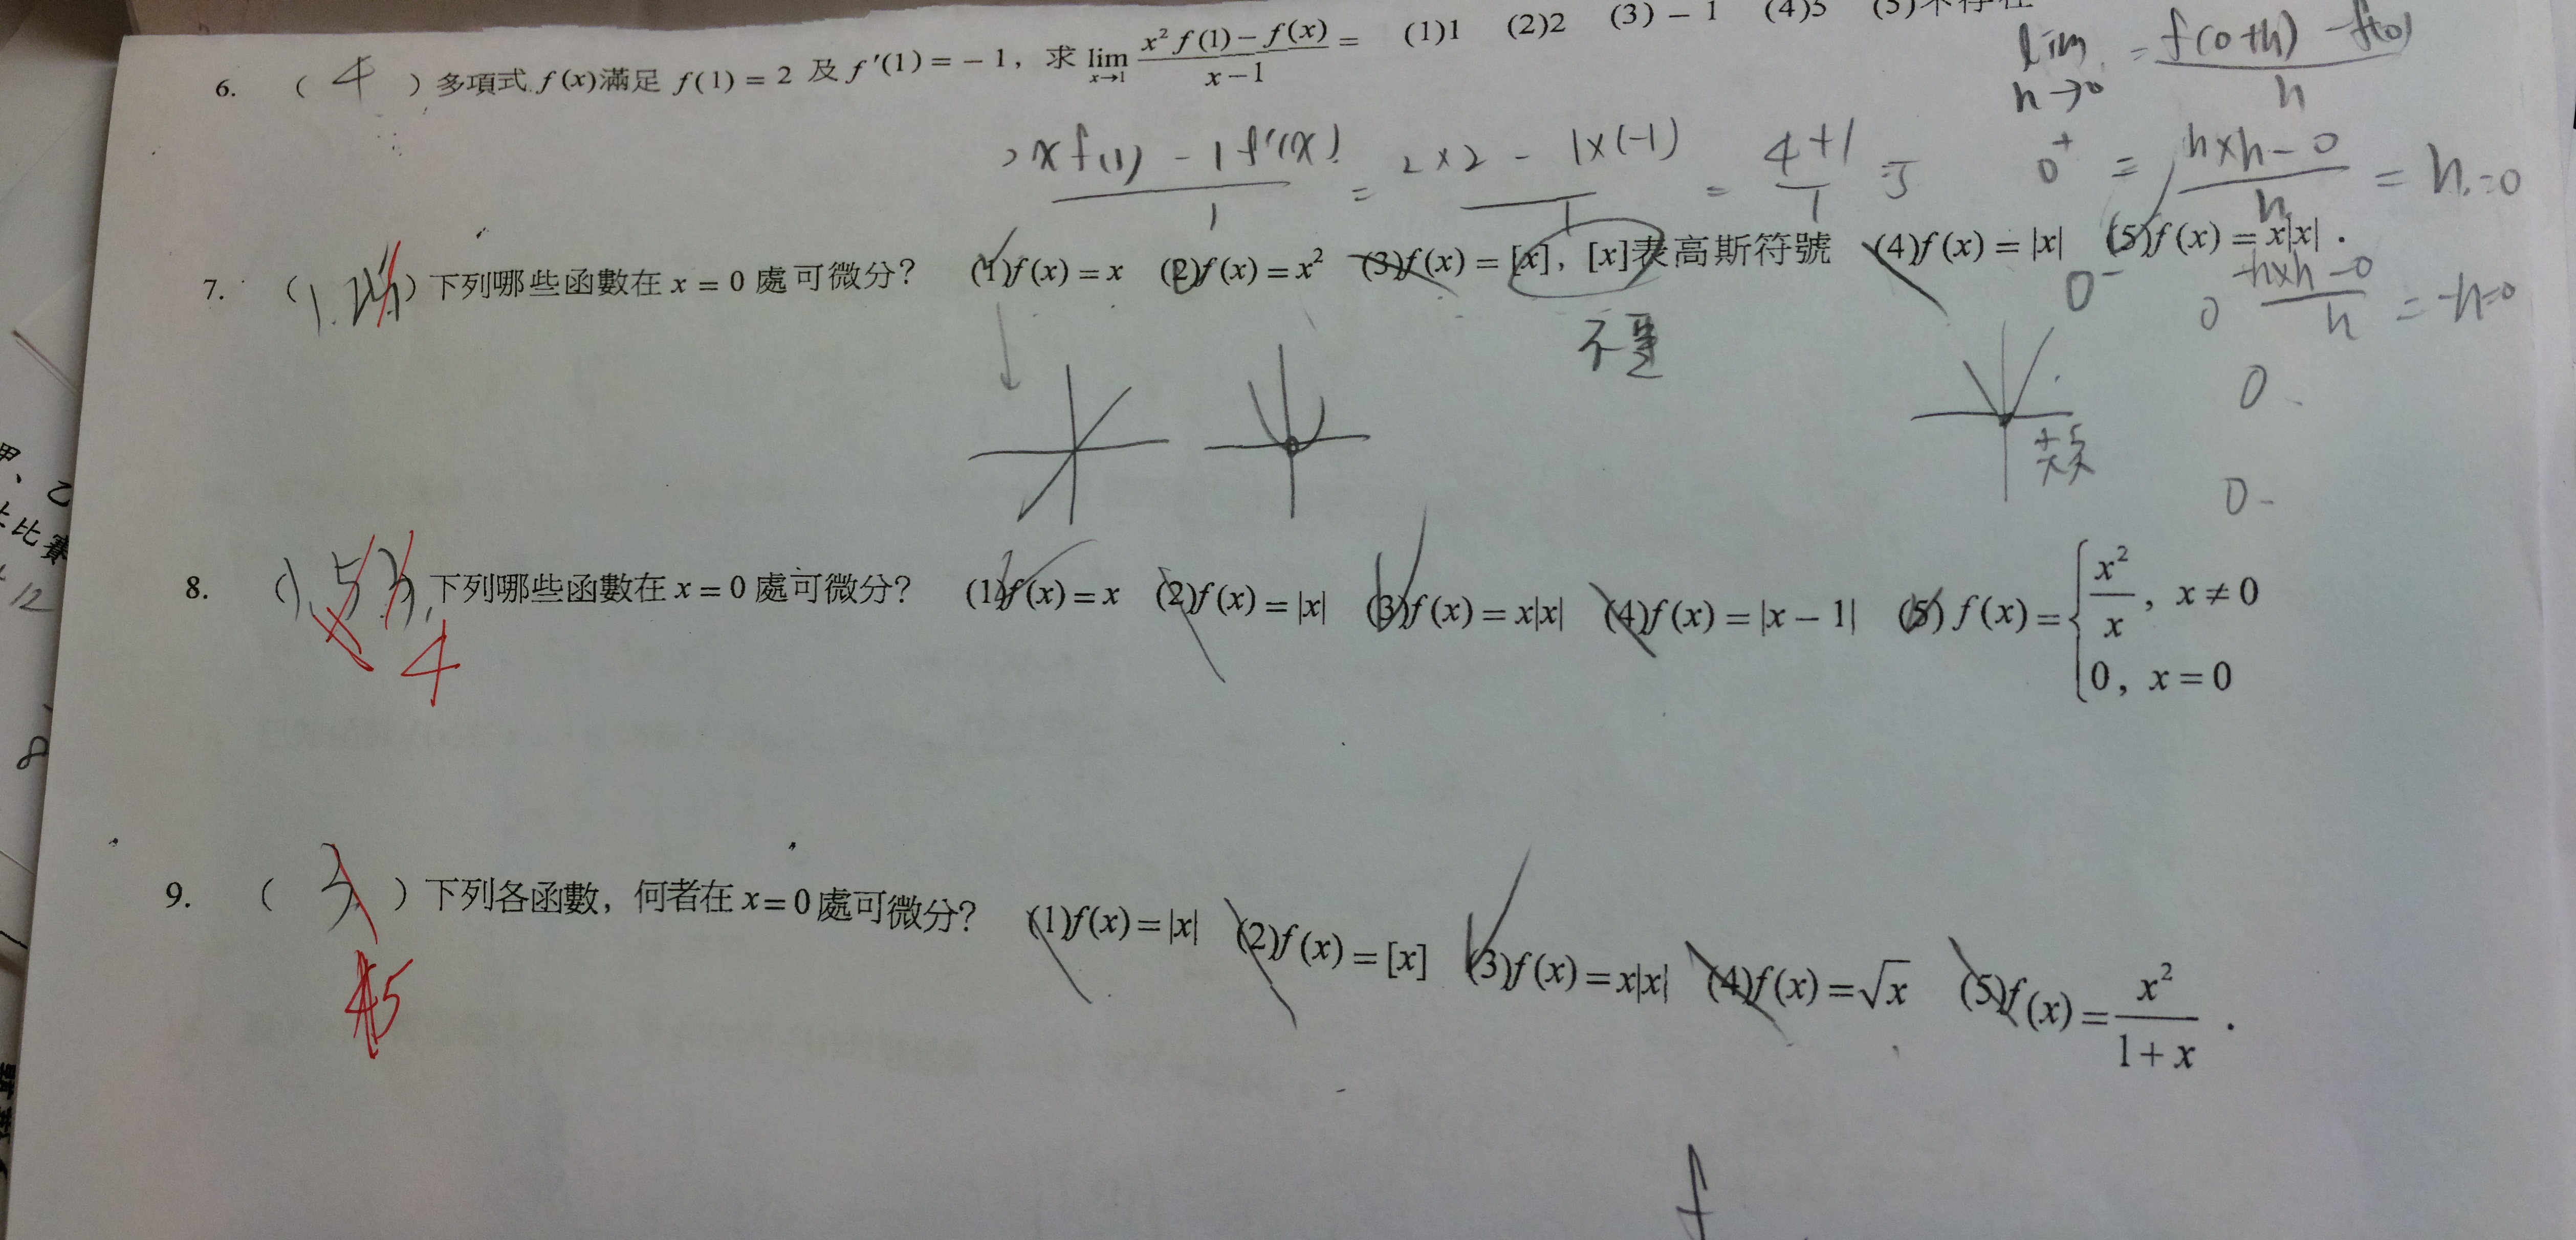 (3) − 1 (4)5
6. ( 4 ) 多項式 f(x)滿足 f(1) = 2 及 f′(1) = − 1，求 lim x→1 x² f(1) − f(x) / x − 1 = (1)1 (2)2
lim h→0 = f(0+h) − f(0) / h
x f(1) − 1 f′(x) / 1 = 2×2 − 1×(−1) / 1 = 4+1 / 1 = 5
0⁺ = h×h − 0 / h = h = 0
7. ( 1. 2 5 ) 下列哪些函數在 x = 0 處可微分？ (1)f(x) = x (2)f(x) = x² (3)f(x) = [x]，[x]表高斯符號 (4)f(x) = |x| (5)f(x) = x|x|．
0⁻ −h×h − 0 / h = −h=0
0
不
尖
0
8. 1. 5 3. 下列哪些函數在 x = 0 處可微分？ (1)f(x) = x (2)f(x) = |x| (3)f(x) = x|x| (4)f(x) = |x − 1| (5) f(x) = { x² / x，x ≠ 0
0，x = 0
4
9. ( 3 ) 下列各函數，何者在 x = 0 處可微分？ (1)f(x) = |x| (2)f(x) = [x] (3)f(x) = x|x| (4)f(x) = √x (5)f(x) = x² / 1 + x．
5
f
甲、乙
比賽
12
8